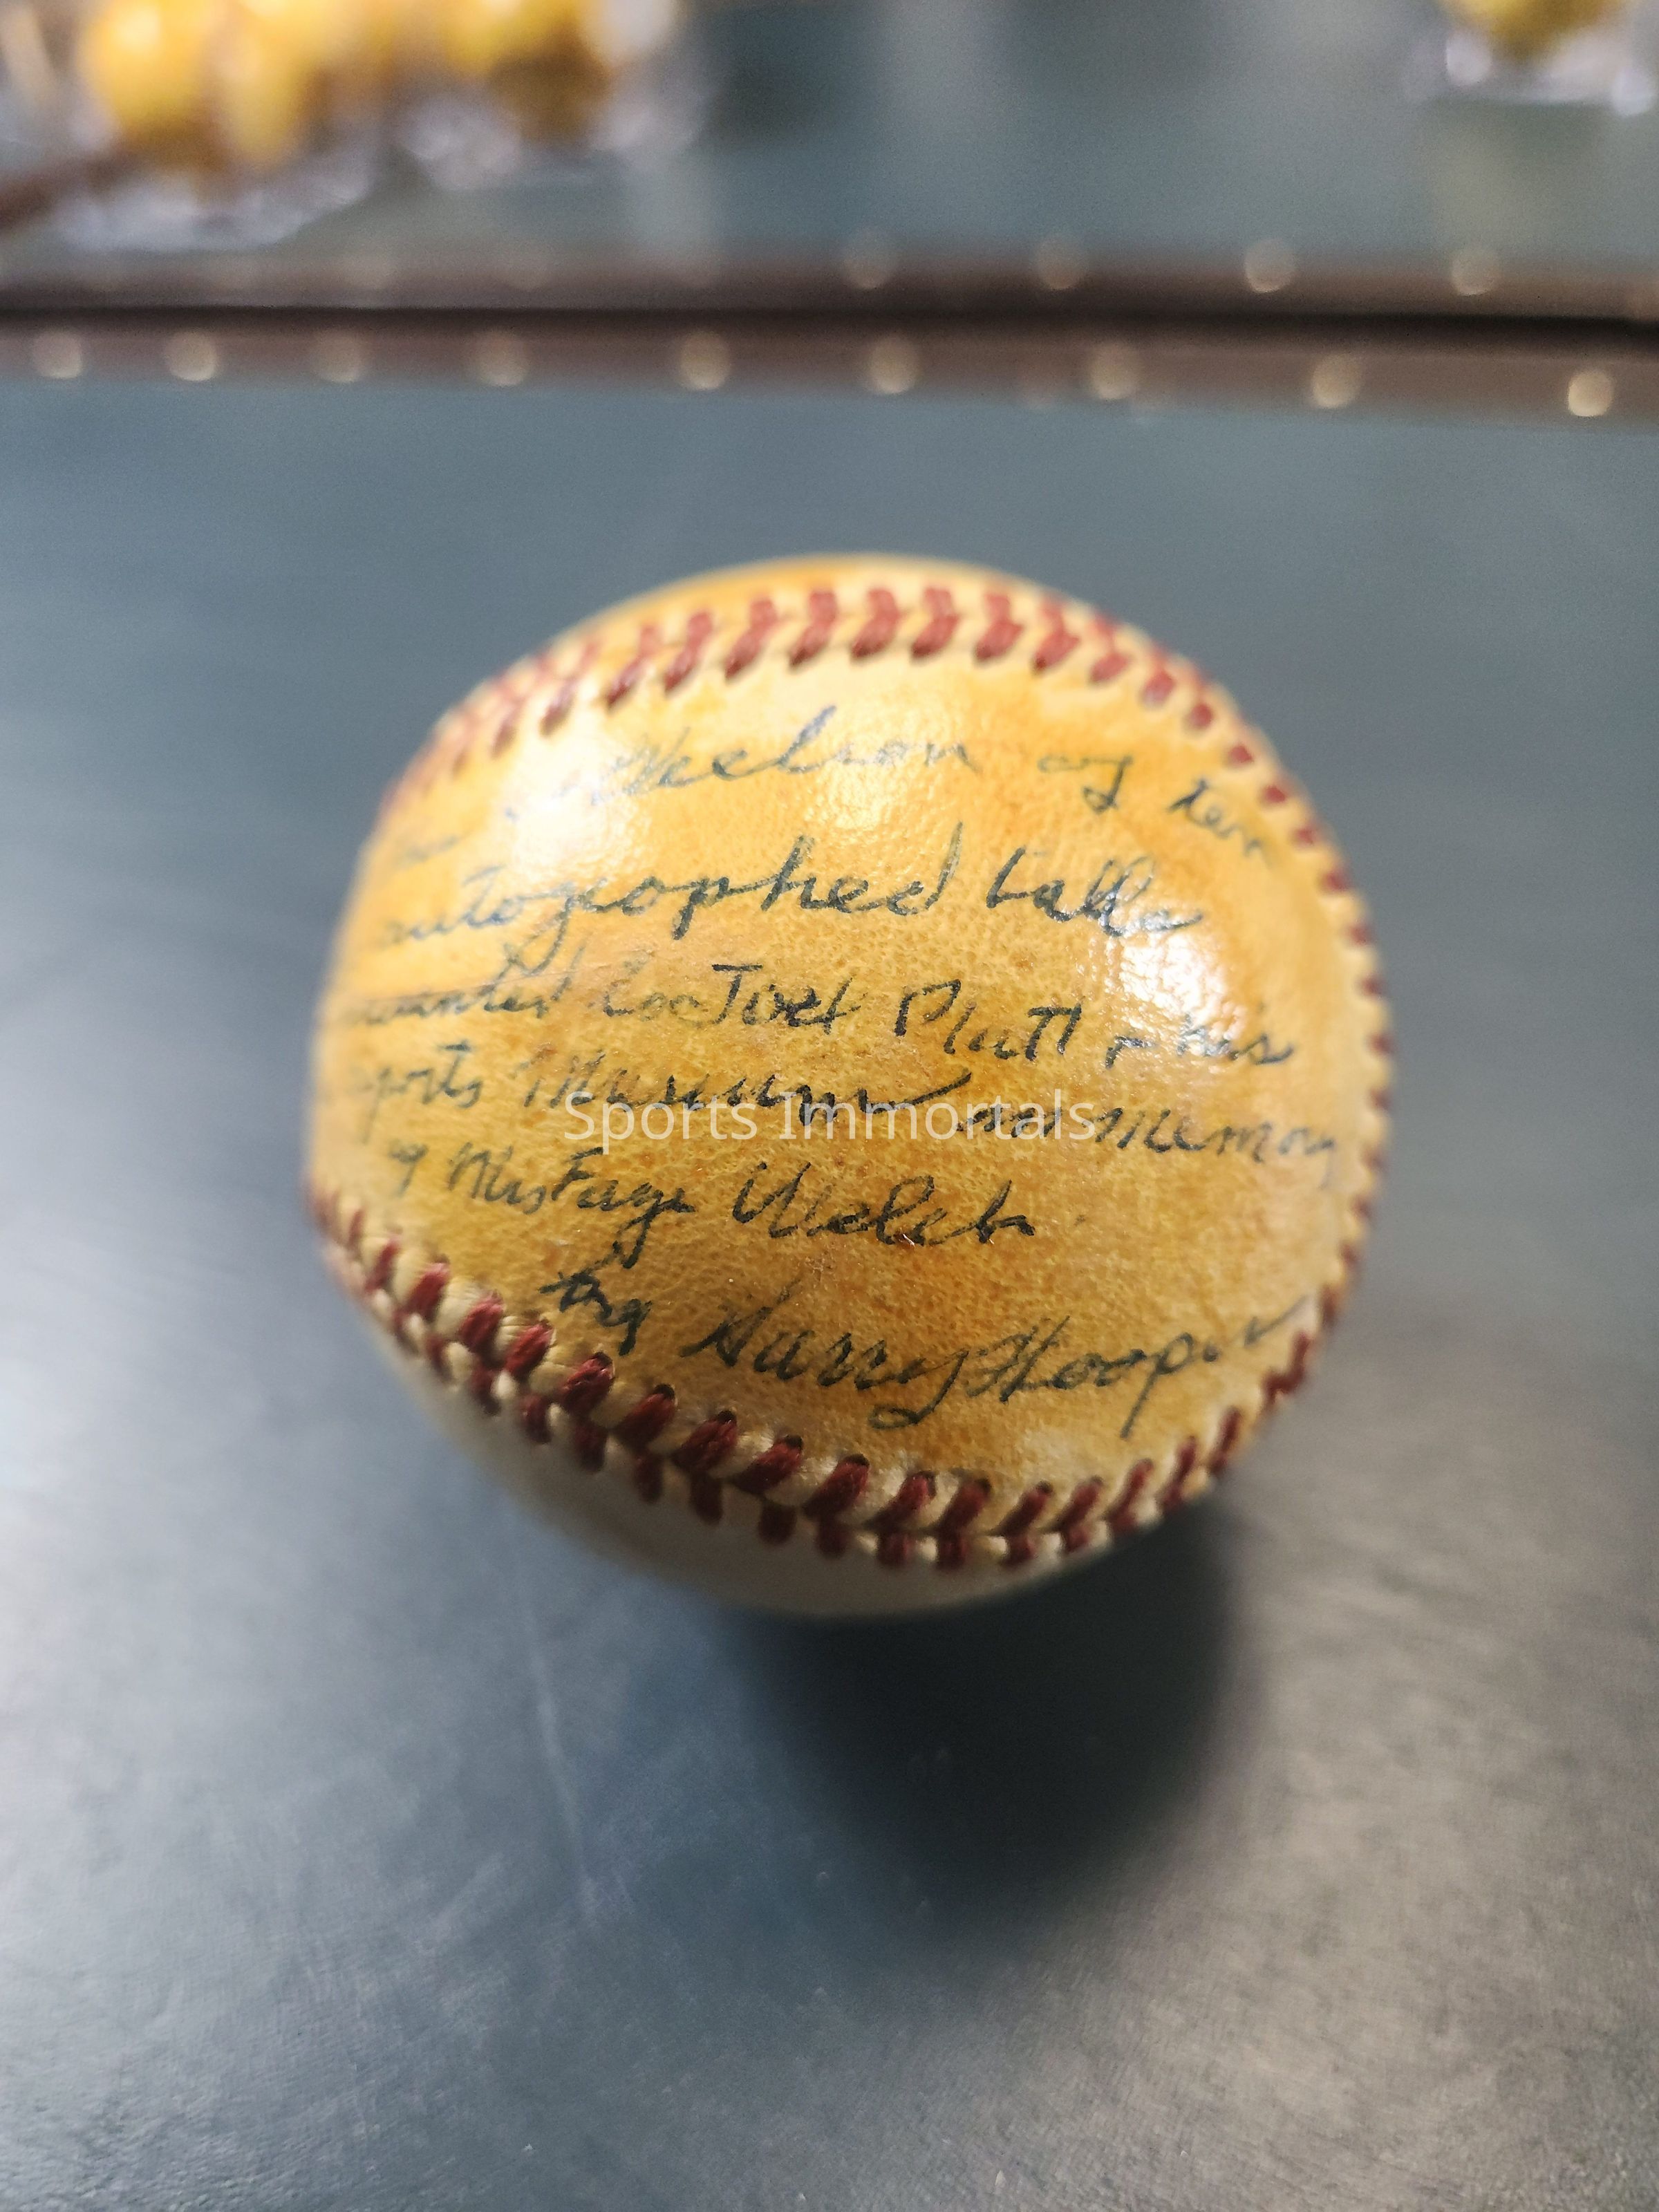 collection of ten
autographed balls
mounted for Joel Platt & his
sports Museum and memory
of Miss Faye Welch
by Harry Hooper
Sports Immortals